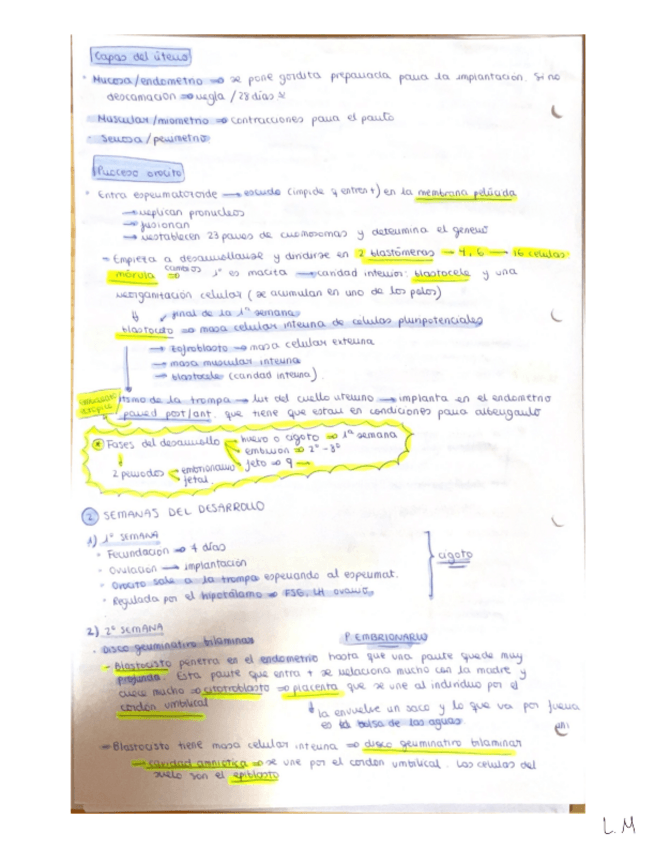 Capas del útero
· Mucosa/endometrio ⇒ se pone gordita preparada para la implantación. Si no
descamación ⇒ regla / 28 días
· Muscular/miometrio ⇒ contracciones para el parto
· Serosa/perimetrio
Proceso ovocito
· Entra espermatozoide → escudo (impide q entren +) en la membrana pelúcida
→ replican pronúcleos
→ fusionan
→ restablecen 23 pares de cromosomas y determina el género
- Empieza a desarrollarse y dividirse en 2 blastómeros → 4, 6 → 16 células
mórula cambios ⇒ 1º es maciza → cavidad interior: blastocele y una
reorganización celular (se acumulan en uno de los polos)
⇓ final de la 1ª semana
blastocito ⇒ masa celular interna de células pluripotenciales
→ trofoblasto → masa celular externa
→ masa muscular interna
→ blastocele (cavidad interna).
itsmo de la trompa → luz del cuello uterino → implanta en el endometrio
pared post/ant. que tiene que estar en condiciones para albergarlo
* Fases del desarrollo huevo o cigoto ⇒ 1ª semana
embrion ⇒ 2ª - 8ª
feto ⇒ 9 →
2 periodos embrionario
fetal.
2 SEMANAS DEL DESARROLLO
1) 1ª SEMANA
· Fecundación ⇒ 4 días
· Ovulación → implantación
· Ovocito sale a la trompa esperando al espermat.
· Regulada por el hipotálamo ⇒ FSG, LH ovario
cigoto
2) 2ª SEMANA
P. EMBRIONARIO
· Disco germinativo bilaminar
- Blastocisto penetra en el endometrio hasta que una parte quede muy
profunda. Esta parte que entra + se relaciona mucho con la madre y
crece mucho ⇒ citotroblasto ⇒ placenta que se une al individuo por el
cordón umbilical
la envuelve un saco y lo que va por fuera
es la bolsa de las aguas
- Blastocisto tiene masa celular interna ⇒ disco germinativo bilaminar
→ cavidad amniótica ⇒ se une por el cordón umbilical. Las células del
suelo son el epiblasto
L.M